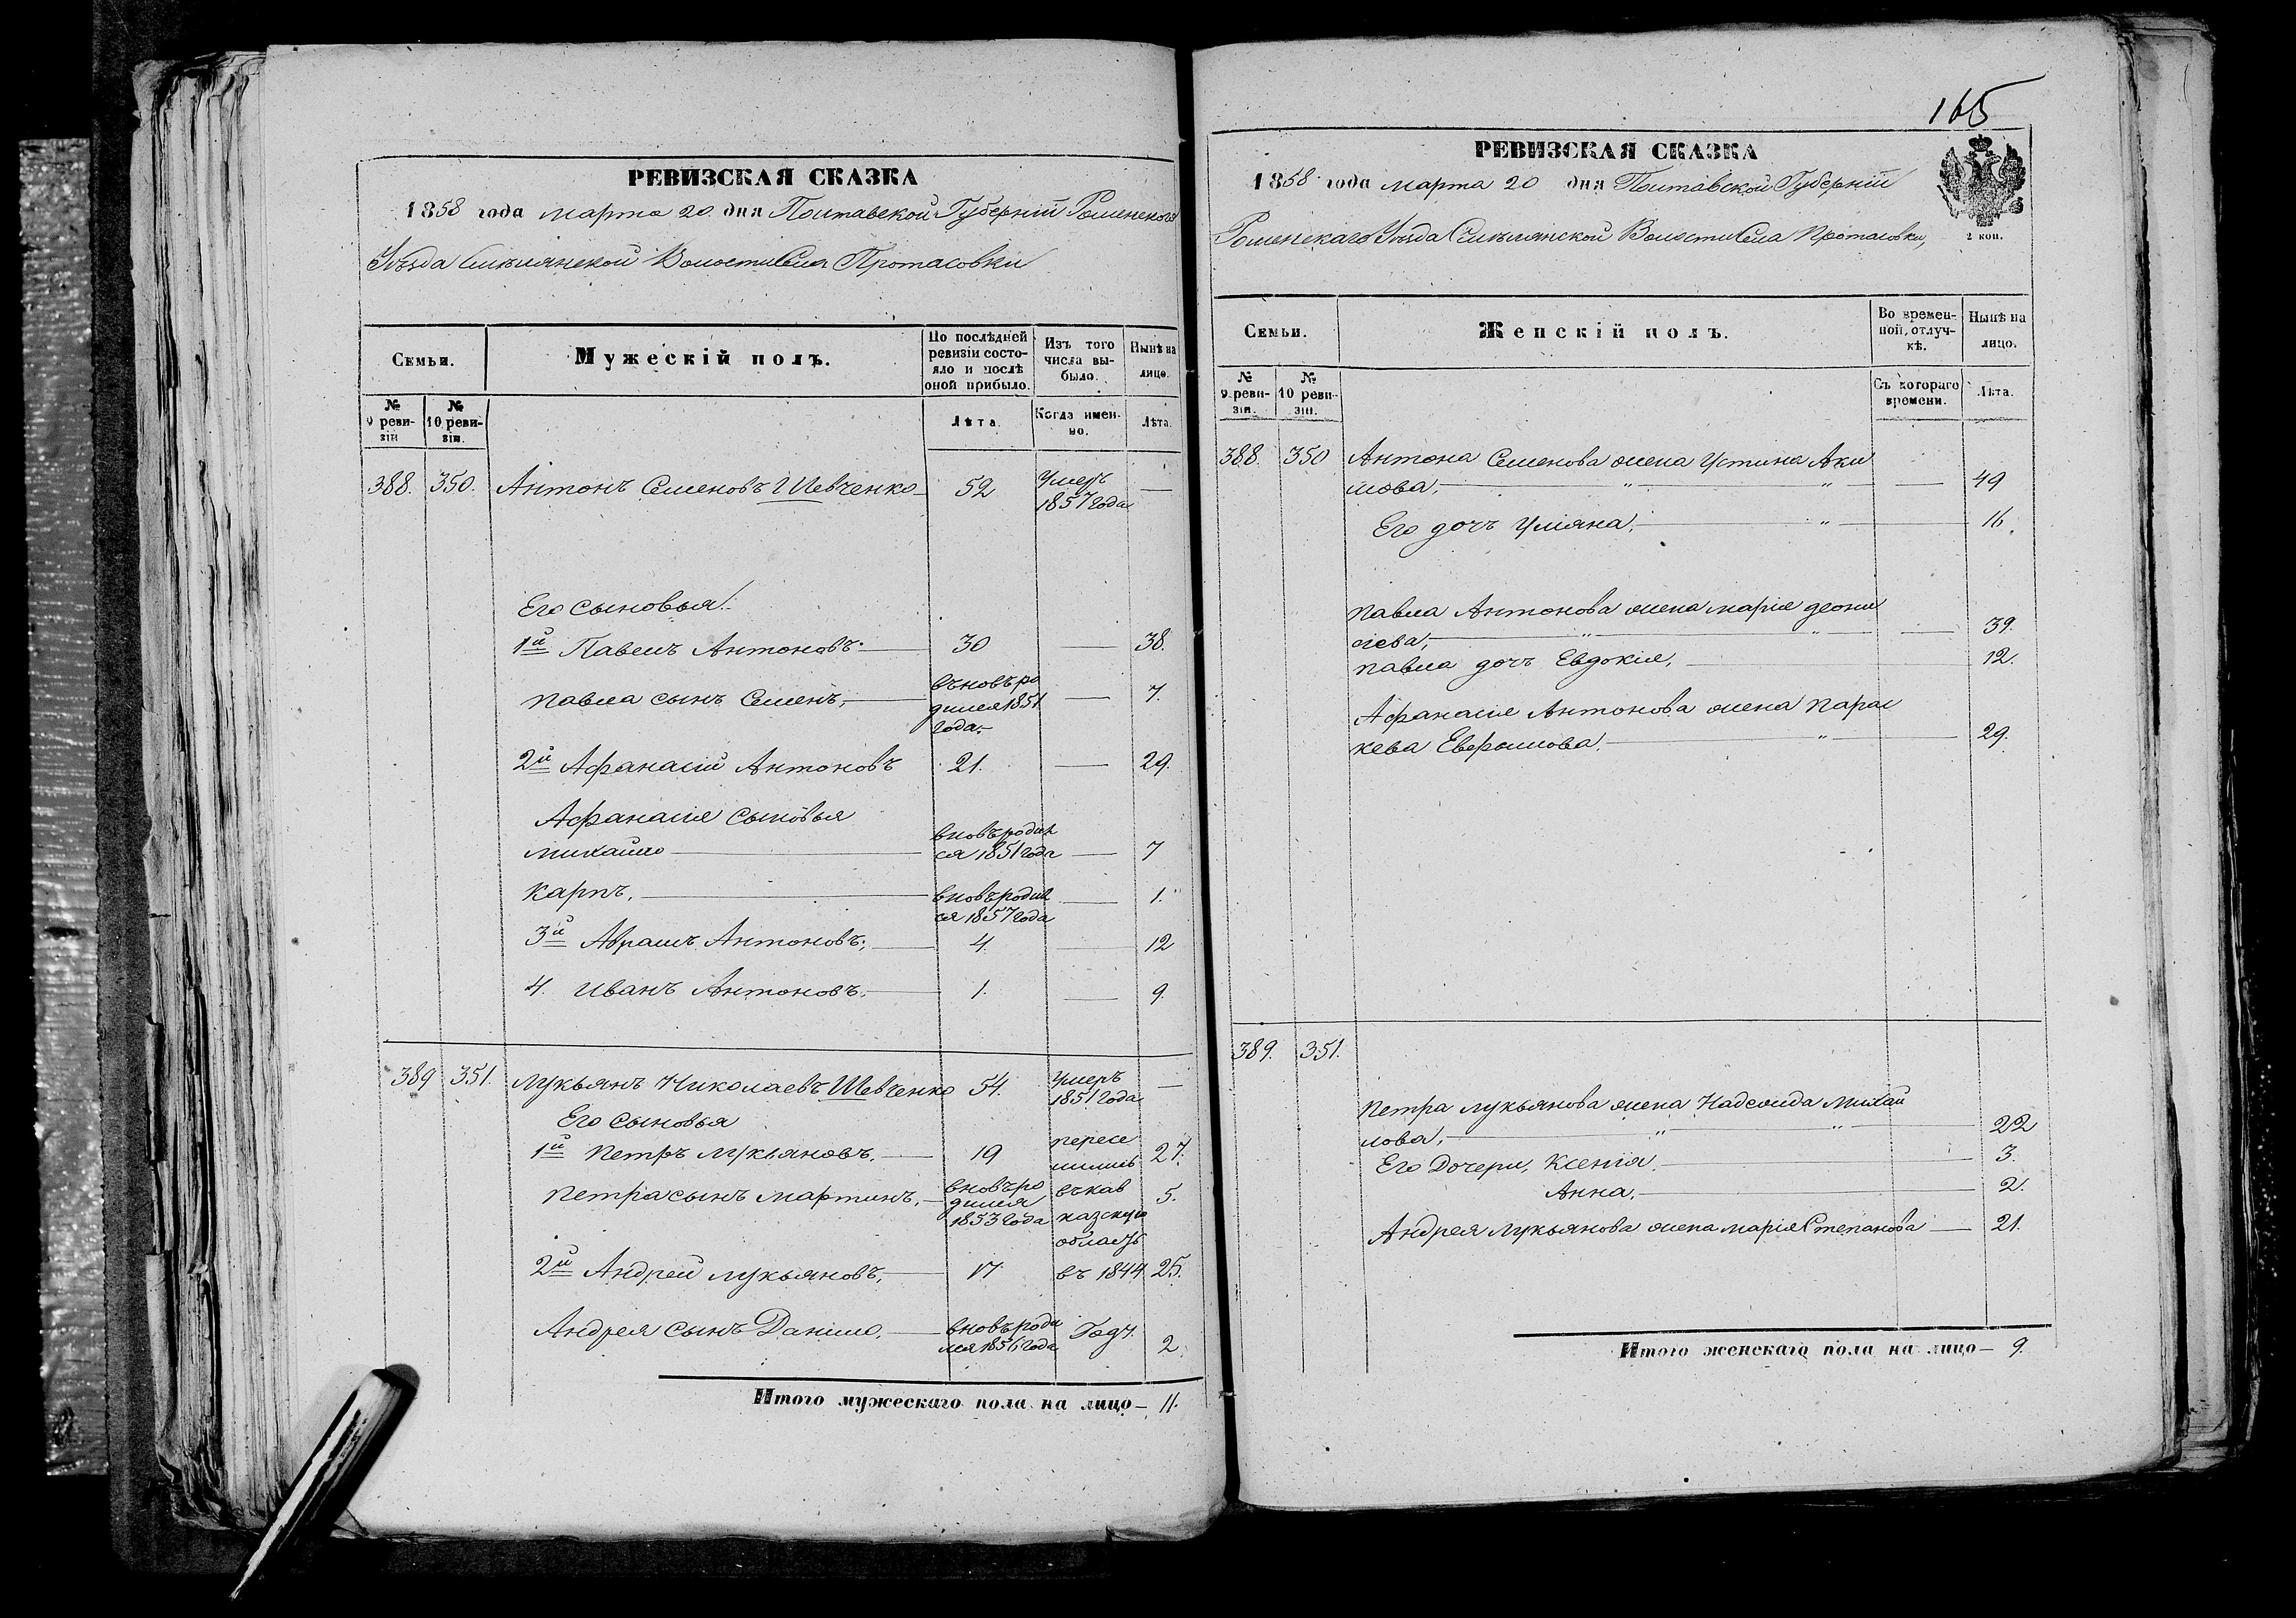 РЕВИЗСКАЯ СКАЗКА
1858 года марта 20 дня Полтавской Губерніи Роменского
Уѣзда Смѣлянской Волости Села Протасовки
Семьи.
Мужескій полъ.
По послѣдней ревизіи состояло и послѣ оной прибыло.
Изъ того числа выбыло.
Нынѣ на лицо.
№ 9 ревизіи
№ 10 ревизіи.
Лѣта.
Когда именно.
Лѣта.
388. 350. Антонъ Семеновъ Шевченко 52 Умеръ 1857 года —
Его сыновья.
1й Павелъ Антоновъ. 30 — 38.
Павла сынъ Семенъ, въновь родился 1851 года. — 7.
2й Афанасій Антоновъ 21. — 29.
Афанасія сыновья
Михайло вновъ родился 1851 года — 7
Карпъ. вновъ родился 1857 года — 1.
3й Абрамъ Антоновъ. 4. — 12
4. Иванъ Антоновъ. 1. — 9.
389 351. Лукьянъ Николаевъ Шевченко 54. Умеръ 1851 года —
Его сыновья
1й Петръ Лукьяновъ. 19 переселились 27.
Петра сынъ Мартинъ, вновъ родился 1853 года въ кавказскую область 5.
2й Андрей Лукьяновъ. 17 въ 1844 25.
Андрея сынъ Данило. вновъ родился 1856 года Году. 2.
Итого мужескаго пола на лицо — 11.
165
РЕВИЗСКАЯ СКАЗКА
1858 года марта 20 дня Полтавской Губерніи
Роменскаго Уѣзда Смѣлянской Волости Села Протасовки,
2 коп.
Семьи.
Женскій полъ.
Во временной отлучкѣ.
Нынѣ на лицо.
№ 9 ревизіи.
№ 10 ревизіи.
Съ котораго времени.
Лѣта.
388. 350 Антона Семенова жена Устина Аки
мова, — 49
Его дочъ Уліяна, 16.
Павла Антонова жена Марія Деони
сіева, — 39.
Павла дочъ Евдокія, 12.
Афанасія Антонова жена Парас
кева Ефрымова. 29.
389. 351.
Петра Лукьянова жена Надсоида Михай
лова, 22
Его Дочери, Ксенія. 3.
Анна. 2.
Андрея Лукьянова жена Марія Степанова 21.
Итого женскаго пола на лицо — 9.